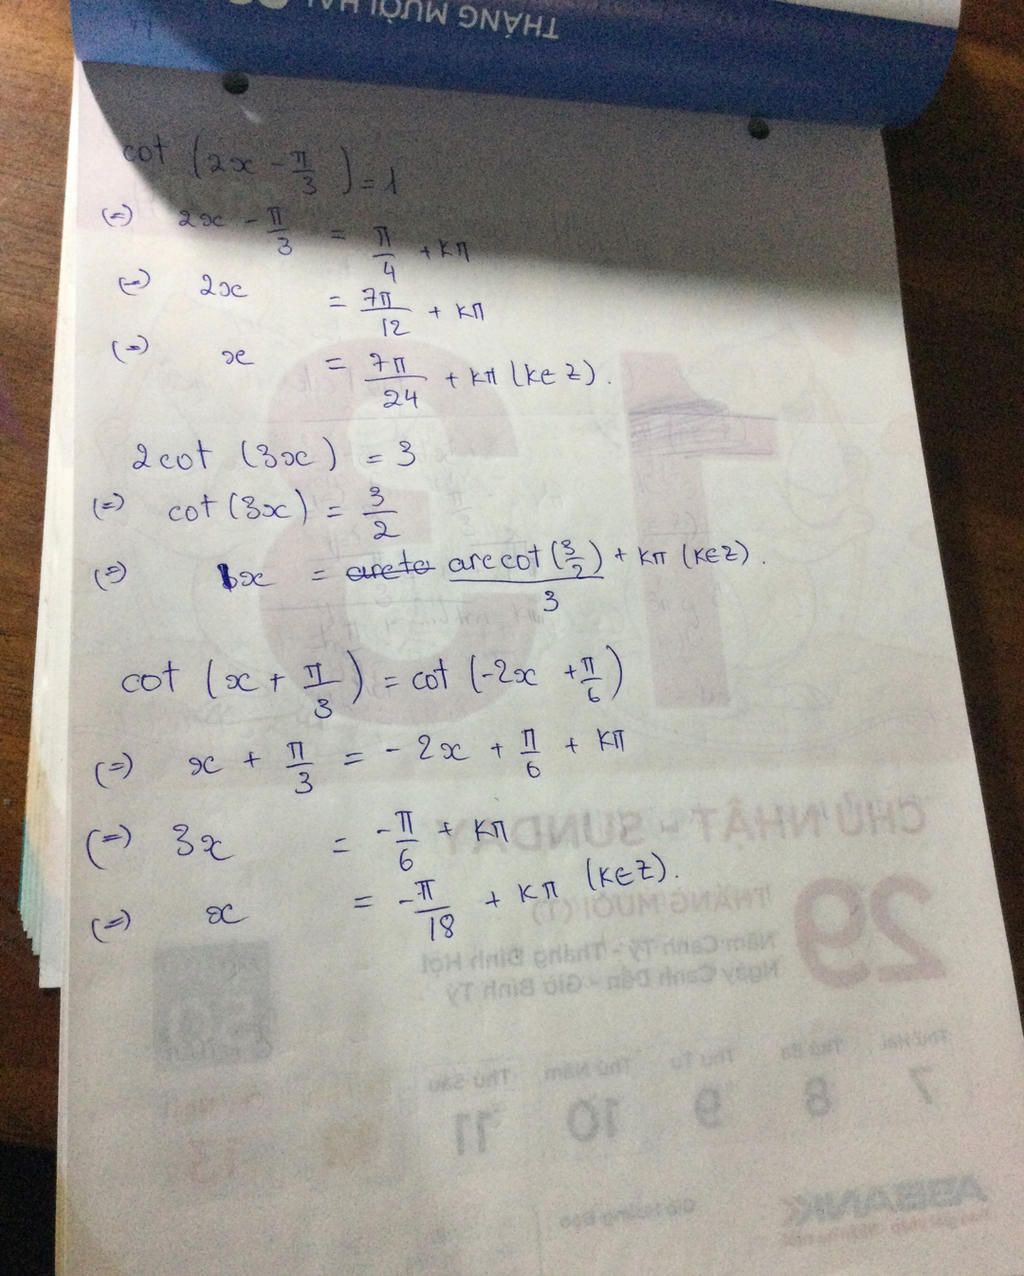 THÁNG MƯỜI HAI
cot (2x - π/3) = 1
(=) 2x - π/3 = π/4 + kπ
(=) 2x = 7π/12 + kπ
(=) x = 7π/24 + kπ (k∈Z).
2cot (3x) = 3
(=) cot (3x) = 3/2
(=) x = arccot(3/2)/3 + kπ (k∈Z).
cot (x + π/3) = cot (-2x + π/6)
(=) x + π/3 = -2x + π/6 + kπ
(=) 3x = -π/6 + kπ
(=) x = -π/18 + kπ (k∈Z).
13
CHỦ NHẬT - SUNDAY
29
THÁNG MƯỜI (T)
Năm Canh Tý - Tháng Đinh Hợi
Ngày Canh Dần - Giờ Bính Tý
Thứ Hai Thứ Ba Thứ Tư Thứ Năm Thứ Sáu
7 8 9 10 11
13
ABBANK